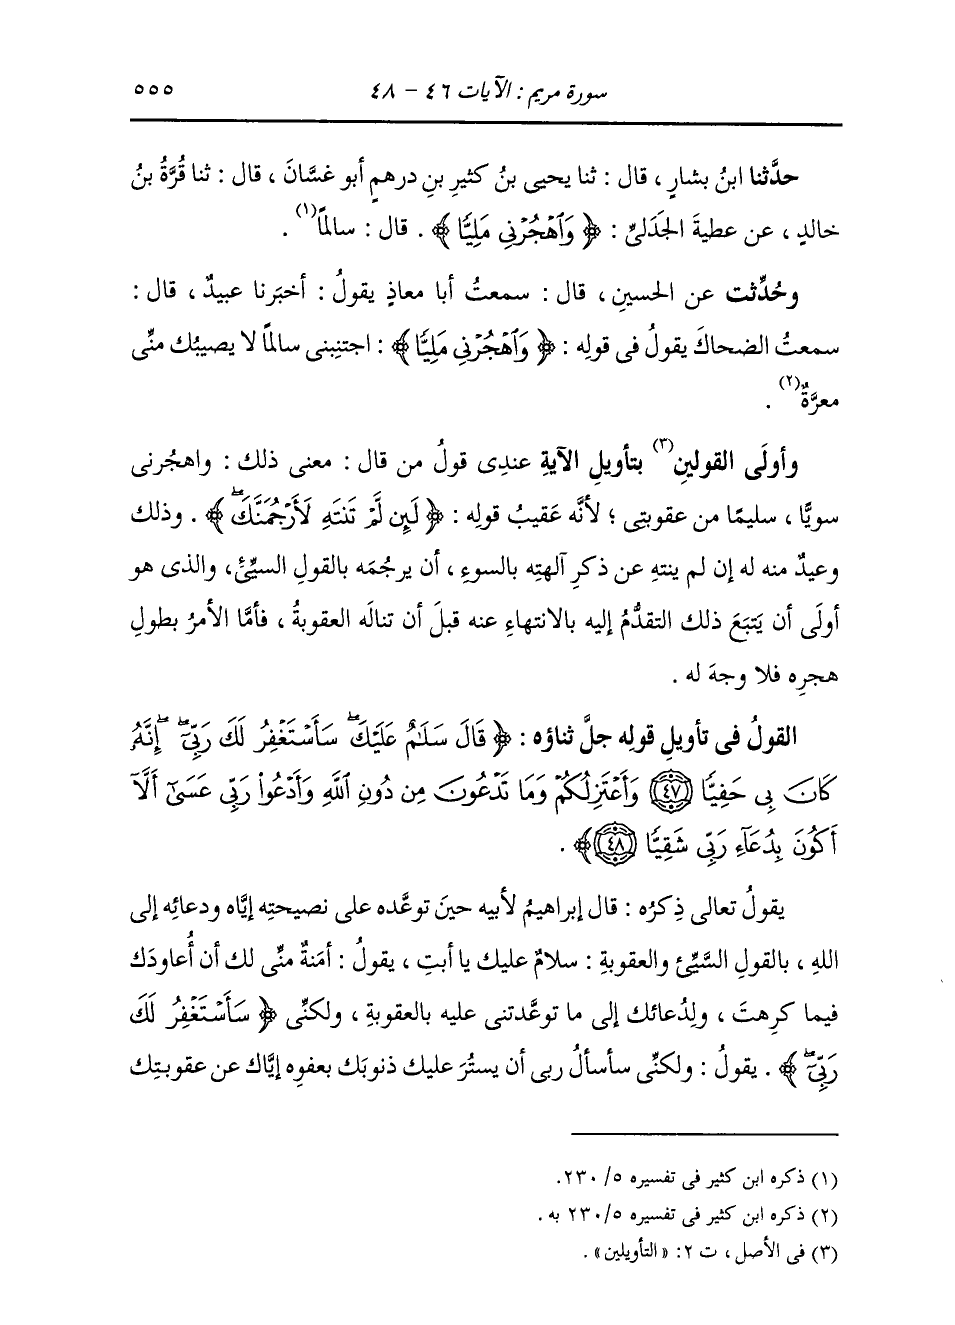 سورة مريم : الآيات ٤٦ - ٤٨ ٥٥٥
حدَّثنا ابنُ بشارٍ ، قال : ثنا يحيى بنُ كثيرِ بنِ درهمٍ أبو غسَّانَ ، قال : ثنا قُرَّةُ بنُ
خالدٍ ، عن عطيةَ الجَدَلىِّ : ﴿ وَٱهْجُرْنِي مَلِيًّا ﴾ . قال : سالماً(١) .
وحُدِّثت عن الحسينِ ، قال : سمعتُ أبا معاذٍ يقولُ : أخبَرنا عبيدٌ ، قال :
سمعتُ الضحاكَ يقولُ فى قولِه : ﴿ وَٱهْجُرْنِي مَلِيًّا ﴾ : اجتنِبنى سالماً لا يصيبُك منِّى
معرَّةٌ(٢) .
وأولَى القولين(٣) بتأويلِ الآيةِ عندِى قولُ من قال : معنى ذلك : واهجُرنى
سويًّا ، سليمًا من عقوبتِى ؛ لأنَّه عَقيبُ قولِه : ﴿ لَئِن لَّمْ تَنتَهِ لَأَرْجُمَنَّكَۖ ﴾ . وذلك
وعيدٌ منه له إن لم ينتهِ عن ذكرِ آلهتِه بالسوءِ ، أن يرجُمَه بالقولِ السيِّئِ، والذى هو
أولَى أن يَتبَعَ ذلك التقدُّمُ إليه بالانتهاءِ عنه قبلَ أن تنالَه العقوبةُ ، فأمَّا الأمرُ بطولِ
هجرِه فلا وجهَ له .
القولُ فى تأويلِ قولِه جلَّ ثناؤه : ﴿ قَالَ سَلَـٰمٌ عَلَيْكَۖ سَأَسْتَغْفِرُ لَكَ رَبِّيٓۖ إِنَّهُۥ
كَانَ بِى حَفِيًّا ٤٧ وَأَعْتَزِلُكُمْ وَمَا تَدْعُونَ مِن دُونِ ٱللَّهِ وَأَدْعُوا۟ رَبِّى عَسَىٰٓ أَلَّآ
أَكُونَ بِدُعَآءِ رَبِّى شَقِيًّا ٤٨ ﴾ .
يقولُ تعالى ذِكرُه : قال إبراهيمُ لأبيه حينَ توعَّده على نصيحتِه إيَّاه ودعائِه إلى
اللهِ ، بالقولِ السَّيِّئِ والعقوبةِ : سلامٌ عليك يا أبتِ ، يقولُ : أمَنةٌ منِّى لك أن أُعاودَك
فيما كرِهتَ ، ولِدُعائك إلى ما توعَّدتنى عليه بالعقوبةِ ، ولكنِّى ﴿ سَأَسْتَغْفِرُ لَكَ
رَبِّيٓۖ ﴾ . يقولُ : ولكنِّى سأسألُ ربى أن يستُرَ عليك ذنوبَك بعفوِه إيَّاك عن عقوبتِك
(١) ذكره ابن كثير فى تفسيره ٥/ ٢٣٠.
(٢) ذكره ابن كثير فى تفسيره ٥/ ٢٣٠ به .
(٣) فى الأصل ، ت ٢: «التأويلين» .